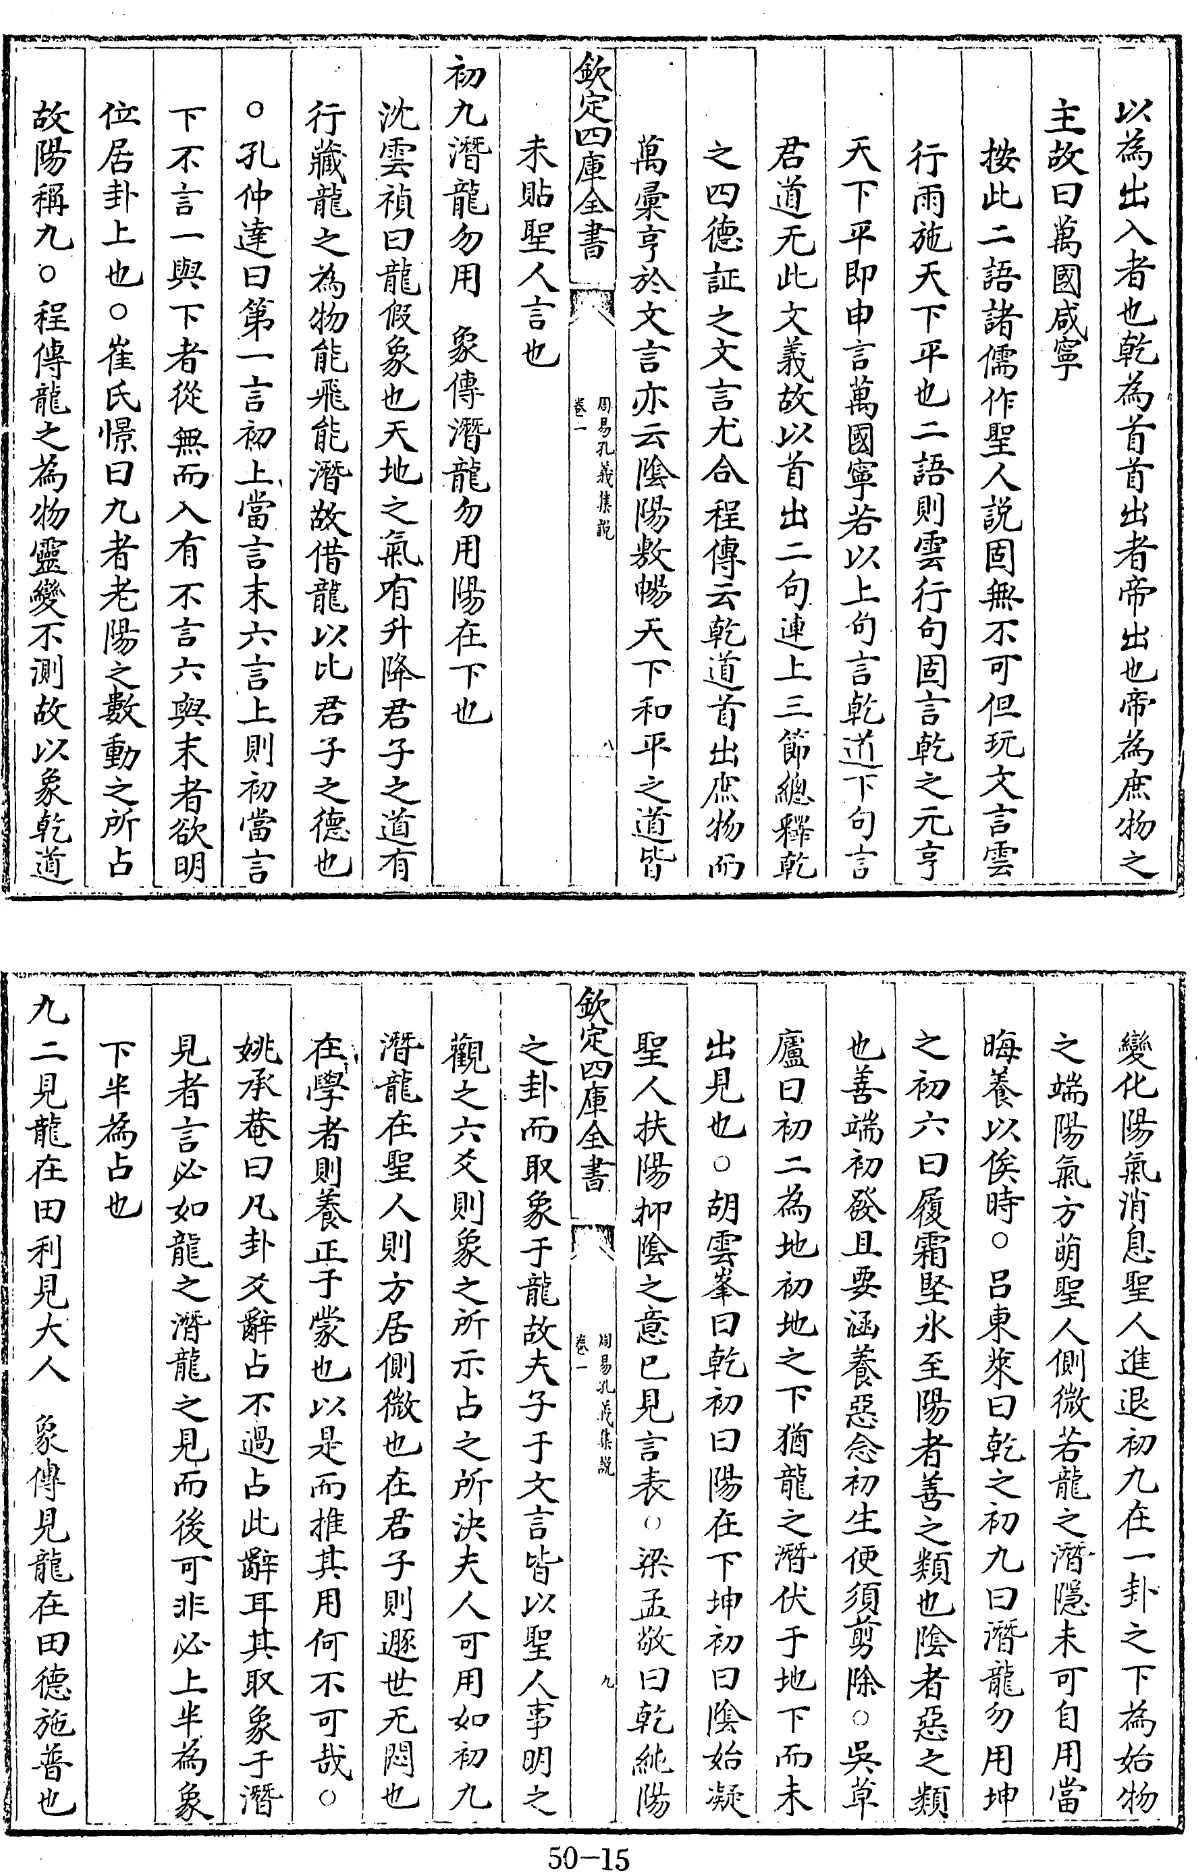 以為出入者也乾為首首出者帝出也帝為庶物之
主故曰萬國咸寧
按此二語諸儒作聖人説固無不可但玩文言雲
行雨施天下平也二語則雲行句固言乾之元亨
天下平即申言萬國寧若以上句言乾道下句言
君道无此文義故以首出二句連上三節總釋乾
之四德証之文言尤合程傳云乾道首出庶物而
萬彙亨於文言亦云陰陽敷暢天下和平之道皆
欽定四庫全書
周易孔義集說
卷一
八
未貼聖人言也
初九潛龍勿用 象傳潛龍勿用陽在下也
沈雲禎曰龍假象也天地之氣有升降君子之道有
行藏龍之為物能飛能潛故借龍以比君子之德也
○孔仲達曰第一言初上當言末六言上則初當言
下不言一與下者從無而入有不言六與末者欲明
位居卦上也○崔氏憬曰九者老陽之數動之所占
故陽稱九○程傳龍之為物靈變不測故以象乾道
變化陽氣消息聖人進退初九在一卦之下為始物
之端陽氣方萌聖人側微若龍之潛隱未可自用當
晦養以俟時○呂東萊曰乾之初九曰潛龍勿用坤
之初六曰履霜堅氷至陽者善之類也陰者惡之類
也善端初發且要涵養惡念初生便須剪除○吳草
廬曰初二為地初地之下猶龍之潛伏于地下而未
出見也○胡雲峯曰乾初曰陽在下坤初曰陰始凝
聖人扶陽抑陰之意已見言表○梁孟敬曰乾純陽
欽定四庫全書
周易孔義集說
卷一
九
之卦而取象于龍故夫子于文言皆以聖人事明之
觀之六爻則象之所示占之所決夫人可用如初九
潛龍在聖人則方居側微也在君子則遯世无悶也
在學者則養正于蒙也以是而推其用何不可哉○
姚承菴曰凡卦爻辭占不過占此辭耳其取象于潛
見者言必如龍之潛龍之見而後可非必上半為象
下半為占也
九二見龍在田利見大人 象傳見龍在田德施普也
50-15